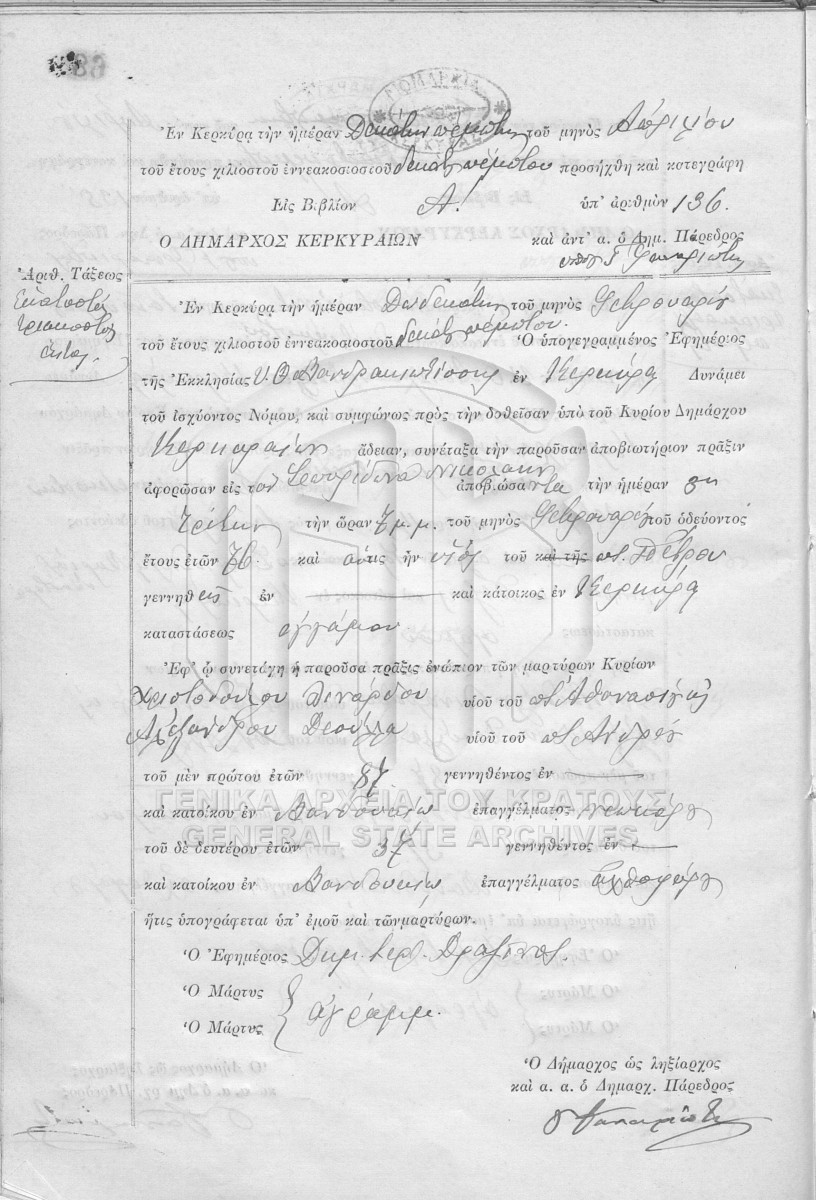 Ἐν Κερκύρᾳ τὴν ἡμέραν Δεκάτην πέμπτην τοῦ μηνὸς Ἀπριλίου
τοῦ ἔτους χιλιοστοῦ ἐννεακοσιοστοῦ δεκάτ πέμπτου προσήχθη καὶ κατεγράφη
Εἰς Βιβλίον Α! ὑπ' ἀριθμὸν 136.
Ὁ ΔΗΜΑΡΧΟΣ ΚΕΡΚΥΡΑΙΩΝ καὶ ἀντ' α. ὁ Δημ. Πάρεδρος
Ἀριθ. Τάξεως
Ἑκατοστὴ
τριακοστὴ
ἕκτη.
Ἐν Κερκύρᾳ τὴν ἡμέραν Δωδεκάτην τοῦ μηνὸς Φεβρουαρίου
τοῦ ἔτους χιλιοστοῦ ἐννεακοσιοστοῦ δεκάτ πέμπτου. Ὁ ὑπογεγραμμένος Ἐφημέριος
τῆς Ἐκκλησίας Υ. Θ. Μανδρακιωτίσσης ἐν Κερκύρᾳ Δυνάμει
τοῦ ἰσχύοντος Νόμου, καὶ συμφώνως πρὸς τὴν δοθεῖσαν ὑπὸ τοῦ Κυρίου Δημάρχου
Κερκυραίων ἄδειαν, συνέταξα τὴν παροῦσαν ἀποβιωτήριον πρᾶξιν
ἀφορῶσαν εἰς τὸν Σπυρίδωνα Νικολάκη ἀποβιώσαντα τὴν ἡμέραν
Τρίτην τὴν ὥραν 7 μ. μ. τοῦ μηνὸς Φεβρουαρίου τοῦ ὁδεύοντος
ἔτους ἐτῶν 76. καὶ αὐτις ἦν υἱὸς τοῦ καὶ τῆς π. Πέτρου
γεννηθεὶς ἐν καὶ κάτοικος ἐν Κερκύρᾳ
καταστάσεως ἀγάμου
Ἐφ' ᾧ συνετάχη ἡ παροῦσα πρᾶξις ἐνώπιον τῶν μαρτύρων Κυρίων
Χριστοδούλου Λενάρδου υἱοῦ τοῦ π. Ἀθανασίου
Ἀλεξάνδρου υἱοῦ τοῦ π. Ἀνδρέου
τοῦ μὲν πρώτου ἐτῶν 87. γεννηθέντος ἐν
καὶ κατοίκου ἐν Μανδουκίῳ ἐπαγγέλματος
τοῦ δὲ δευτέρου ἐτῶν 37 γεννηθέντος ἐν
καὶ κατοίκου ἐν Μανδουκίῳ ἐπαγγέλματος ἀχθοφόρου
ἥτις ὑπογράφεται ὑπ' ἐμοῦ καὶ τῶν μαρτύρων.
Ὁ Ἐφημέριος Δημ. ἱερ.
Ὁ Μάρτυς
ἀγράμμ.
Ὁ Μάρτυς
Ὁ Δήμαρχος ὡς ληξίαρχος
καὶ α. α. ὁ Δημαρχ. Πάρεδρος
ΓΕΝΙΚΑ ΑΡΧΕΙΑ ΤΟΥ ΚΡΑΤΟΥΣ
GENERAL STATE ARCHIVES